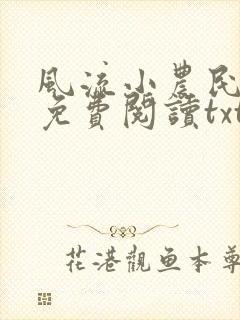 風流小農民
免費閱讀txt
花港觀鱼本尊